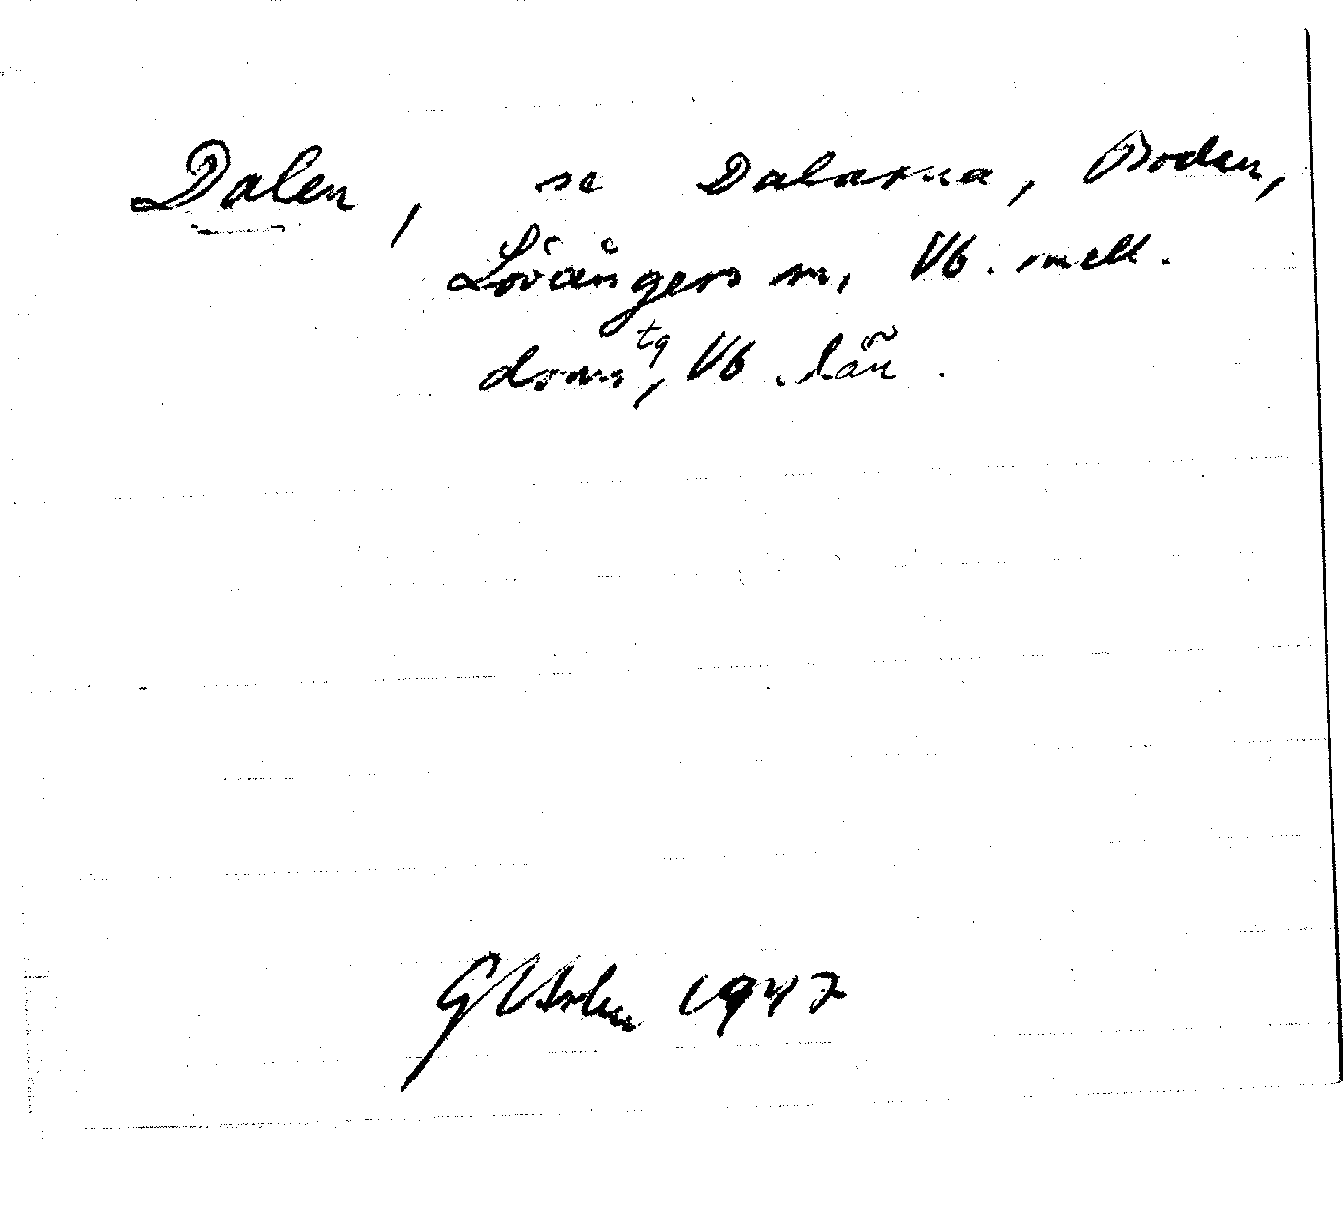 Dalen, se Dalarna, Boden,
Lövångers sn, Vb. mell.
doms tg, Vb. län.
1947